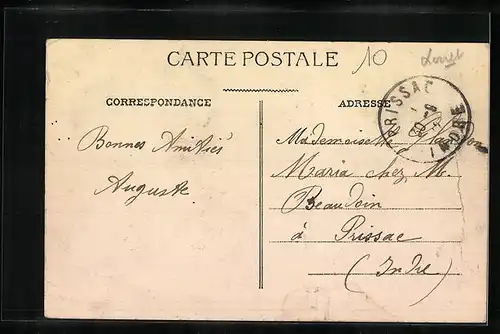 CARTE POSTALE
10
CORRESPONDANCE
ADRESSE
PRISSAC
INDRE
Bonnes Amitiés
Auguste
Mademoiselle
Maria chez M.
Beaudoin
à Prissac
(Indre)